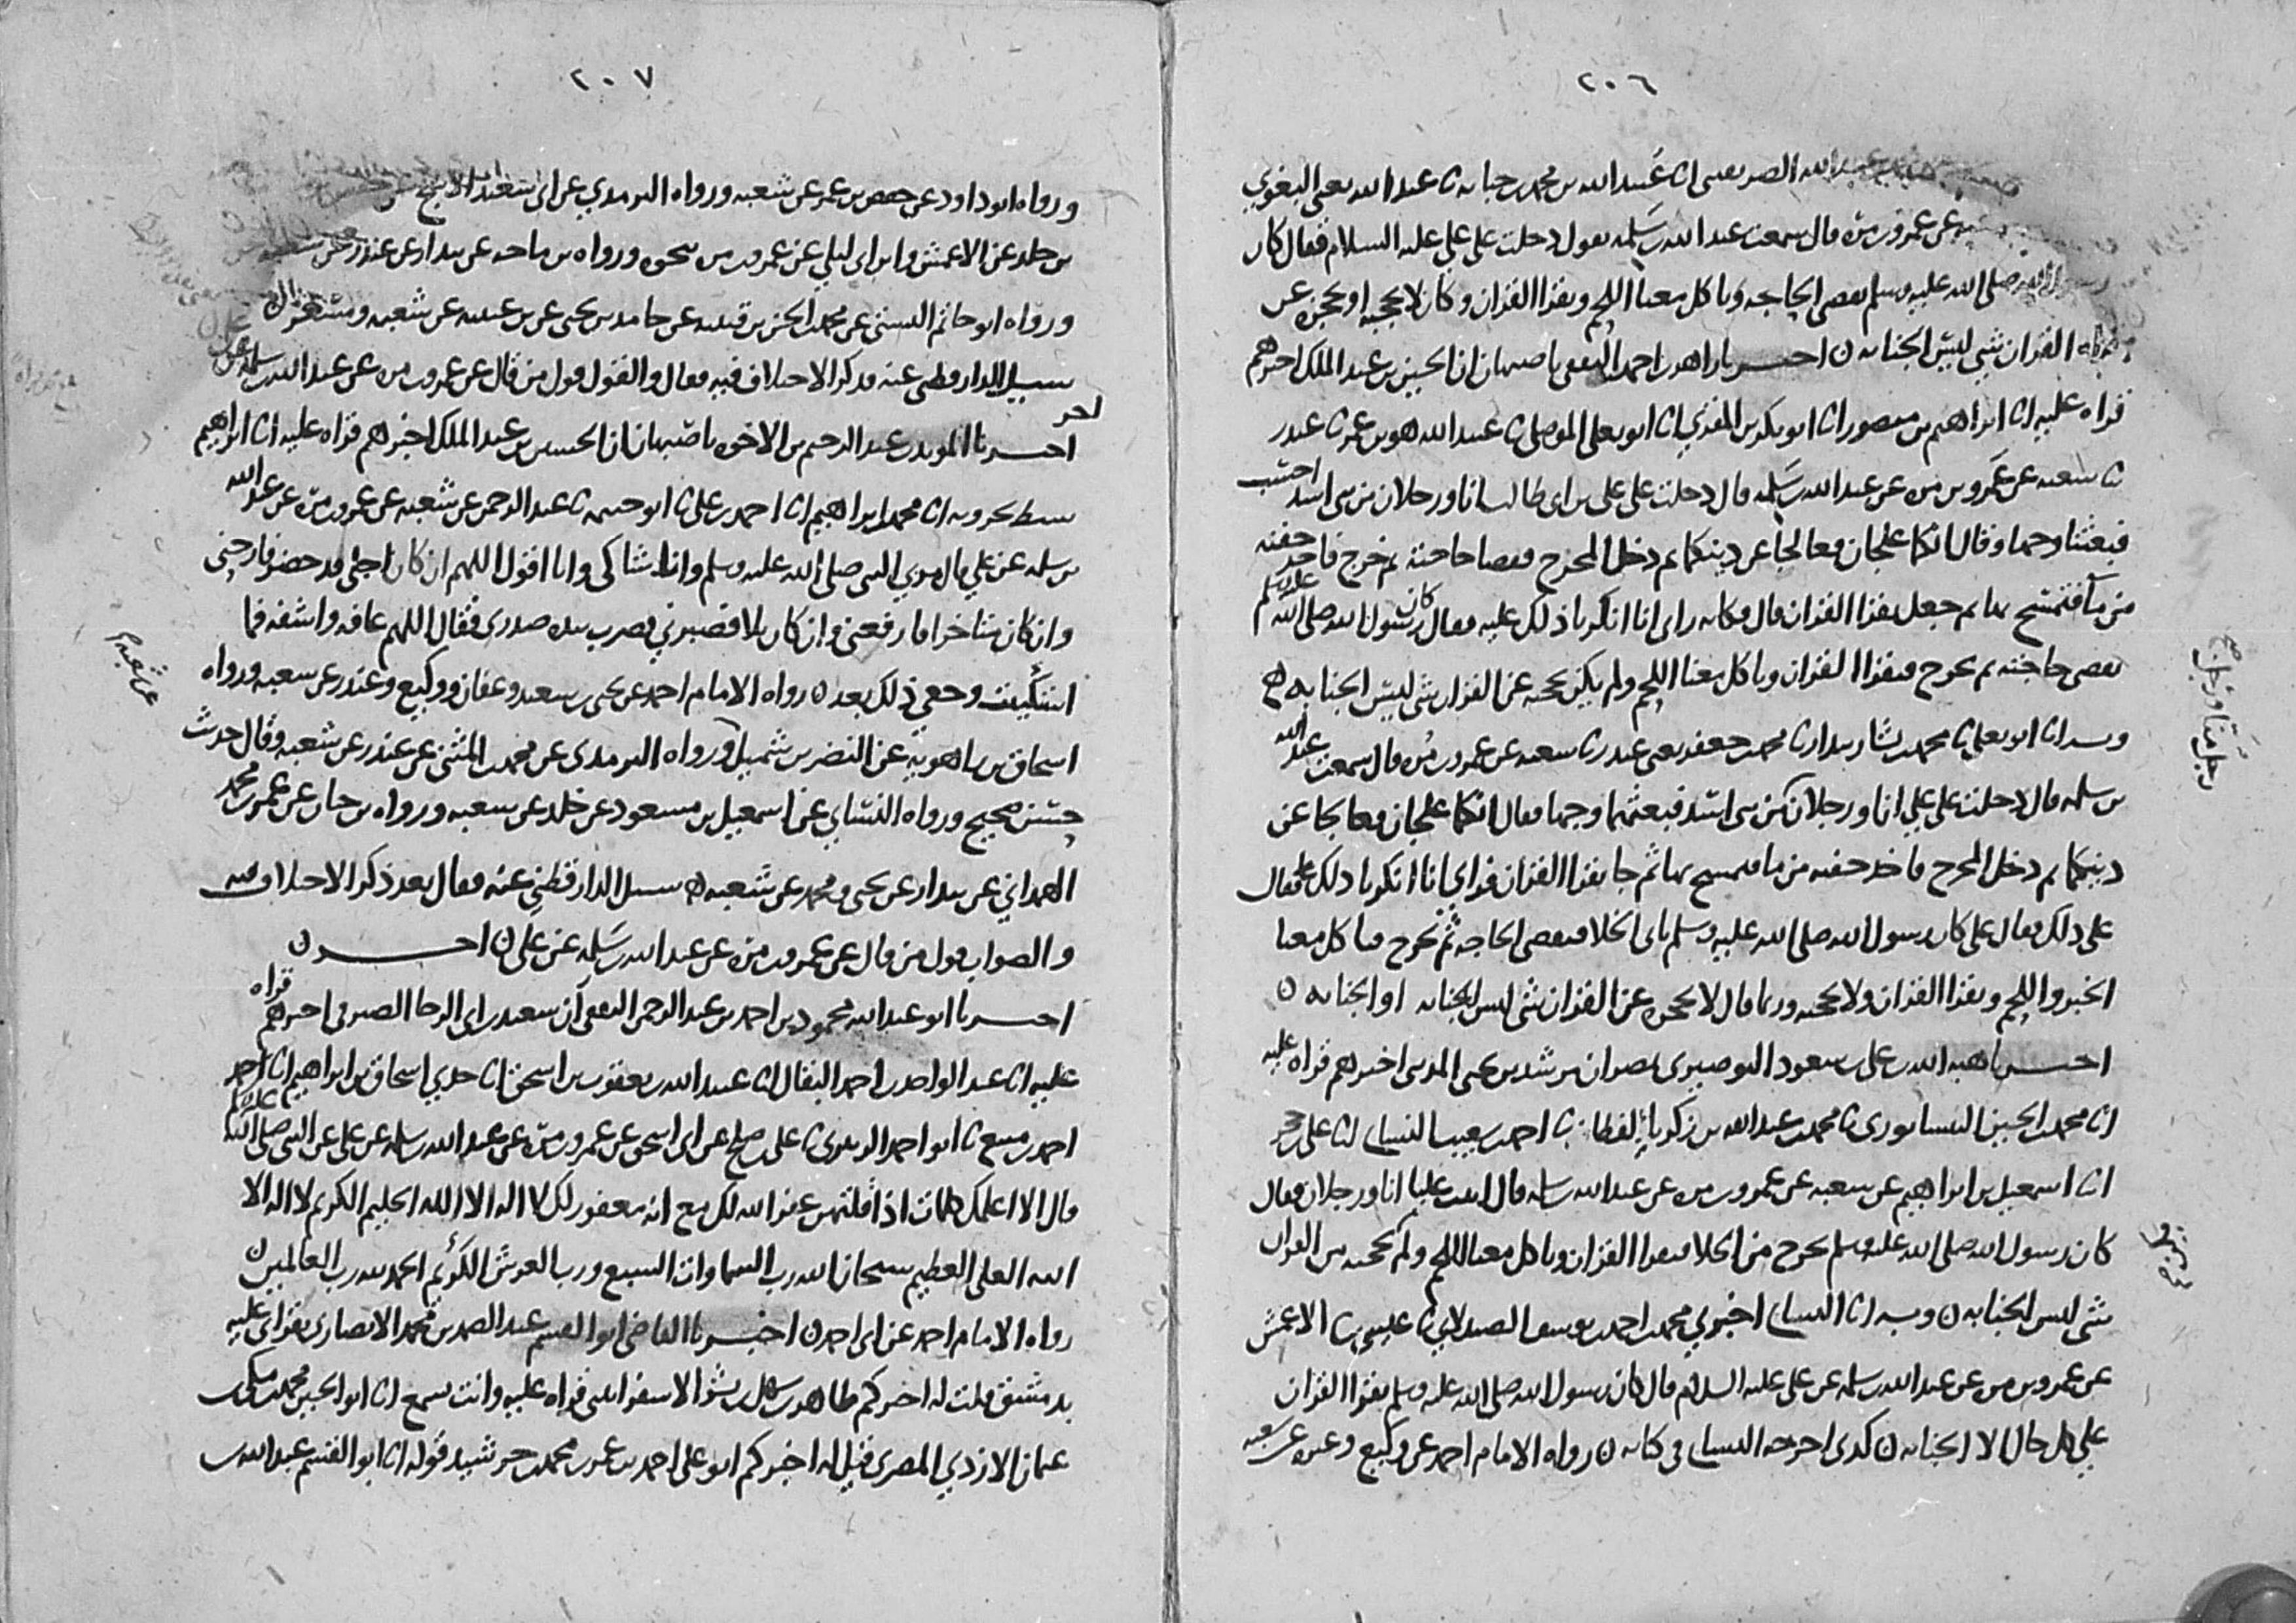 ٢٠٦
عبد الله الصريفيني انا عبيد الله بن محمد بن حبابة ثنا عبد الله يعني البغوي
عن عمرو بن مرة قال سمعت عبد الله بن سلمة يقول دخلت على علي عليه السلام فقال كان
رسول الله صلى الله عليه وسلم يقضي الحاجة وياكل معنا اللحم ويقرا القران وكان لا يحجبه او يحجزه عن
قراة القران شي ليس الجنابة ن اخبرنا زاهر بن احمد الثقفي باصبهان ان الحسين بن عبد الملك اخبرهم
قراه عليه انا ابراهيم بن منصور انا ابو بكر بن المقري انا ابو يعلى الموصلي ثنا عبيد الله هو بن عمر ثنا غندر
ثنا شعبه عن عمرو بن مره عن عبد الله بن سلمه قال دخلت على علي بن ابي طالب انا ورجلان من بني اسد احسب
فبعثنا وجها وقال انكما علجان فعالجا عن دينكما ثم دخل المخرج فقضا حاجته ثم خرج فاخذ حفنه
من ما فتمسح بها ثم جعل يقرا القران قال فكانه راى انا انكرنا ذلك عليه فقال كان رسول الله صلى الله عليه وسلم
يقضي حاجته ثم يخرج فيقرا القران وياكل معنا اللحم ولم يكن يحجبه عن القران شي ليس الجنابه
وبه انا ابو يعلى ثنا محمد بن بشار بندار ثنا محمد بن جعفر يعني غندر ثنا شعبه عن عمرو بن مره قال سمعت عبد الله
بن سلمه قال دخلت على علي انا ورجلان من بني اسد فبعثهما وجها فقال انكما علجان فعالجا عن
دينكما ثم دخل المخرج فاخذ حفنه من ما فتمسح بها ثم جا يقرا القران فراى انا انكرنا ذلك عليه فقال
على ذلك فقال علي كان رسول الله صلى الله عليه وسلم ياتي الخلا فيقضي الحاجه ثم يخرج فياكل معنا
الخبز واللحم ويقرا القران ولا يحجبه وربما قال لا يحجزه عن القران شي ليس الجنابه او الجنابه ن
اخبرنا هبه الله بن علي بن سعود البوصيري بمصر ان مرشد بن يحيى المديني اخبرهم قراه عليه
انا محمد بن الحسين النيسابوري ثنا محمد بن عبد الله بن زكريا القطان ثنا احمد بن شعيب النسائي انا علي بن حجر
انا اسمعيل بن ابراهيم عن شعبه عن عمرو بن مره عن عبد الله بن سلمه قال اتيت عليا انا ورجلان فقال
كان رسول الله صلى الله عليه وسلم يخرج من الخلا فيقرا القران وياكل معنا اللحم ولم يحجبه من القران
شي ليس الجنابه ن وبه انا النسائي اخبرني محمد بن احمد بن يوسف الصيدلاني ثنا عيسى ثنا الاعمش
عن عمرو بن مره عن عبد الله بن سلمه عن علي عليه السلام قال كان رسول الله صلى الله عليه وسلم يقرا القران
على كل حال الا الجنابه ن كذى اخرجه النسائي في كتابه ن رواه الامام احمد عن وكيع وغيره عن شعبه
رجل منا ورجل
٢٠٧
ورواه ابو داود عن حفص بن عمر عن شعبه ورواه الترمدي عن ابي سعيد الاشج عن
بن خلد عن الاعمش وابن ابي ليلي عن عمرو بن مره بنحوه ورواه بن ماجه عن بندار عن غندر عن شعبه
ورواه ابو حاتم البستي عن محمد بن الحسن بن قتيبه عن حامد بن يحيى عن بن عيينه عن شعبه ومسعر
سيل الدارقطني عنه فذكر الاختلاف فيه فقال والقول قول من قال عن عمرو بن مره عن عبد الله بن سلمه عن علي
اخر
اخبرنا المويد بن عبد الرحيم بن الاخوه باصبهان ان الحسين بن عبد الملك اخبرهم قراه عليه انا ابراهيم
سبط بحرويه انا محمد بن ابراهيم انا احمد بن علي ثنا ابو خيثمه ثنا عبد الرحمن عن شعبه عن عمرو بن مره عن عبد الله
بن سلمه عن علي قال مر بي النبي صلى الله عليه وسلم وانا شاكي وانا اقول اللهم ان كان اجلي قد حضر فارحني
وان كان متاخرا فارفعني وان كان بلا فصبرني فضرب بيده صدري فقال اللهم عافه واشفه فما
اشتكيت وجعي ذلك بعد ن رواه الامام احمد عن يحيى بن سعيد وعفان ووكيع وغندر عن شعبه ورواه
عن شعبه
اسحاق بن راهويه عن النضر بن شميل ورواه الترمدي عن محمد بن المثنى عن غندر عن شعبه وقال حديث
حسن صحيح ورواه النسائي عن اسمعيل بن مسعود عن خلد عن شعبه ورواه بن حبان عن عمر بن محمد
الهمداني عن بندار عن يحيى ومحمد عن شعبه سيل الدارقطني عنه فقال بعد ذكر الاختلاف فيه
والصواب قول من قال عن عمرو بن مره عن عبد الله بن سلمه عن علي ن اخر ن
اخبرنا ابو عبد الله محمود بن احمد بن عبد الرحمن الثقفي ان سعيد بن ابي الرجا الصيرفي اخبرهم قراه
عليه انا عبد الواحد بن احمد البقال انا عبيد الله بن يعقوب بن اسحق انا جدي اسحاق بن ابراهيم انا احمد
احمد بن منيع ثنا ابو احمد الزبيري ثنا علي بن صالح عن ابي اسحق عن عمرو بن مره عن عبد الله بن سلمه عن علي عن النبي صلى الله عليه وسلم
قال الا اعلمك كلمات اذا قلتهن غفر الله لك مع انه مغفور لك لا اله الا الله الحليم الكريم لا اله الا
الله العلي العظيم سبحان الله رب السماوات السبع ورب العرش الكريم الحمد لله رب العالمين ن
رواه الامام احمد عن ابي احمد ن اخبرنا القاضي ابو القسم عبد الصمد بن محمد الانصاري بقراتي عليه
بدمشق قلت له اخبركم طاهر بن سهل بن بشر الاسفرايني قراه عليه وانت تسمع انا ابو الحسين محمد بن مكي بن
عثمان الازدي المصري قيل له اخبركم ابو علي احمد بن عمر بن محمد بن خرشيد قوله انا ابو القسم عبد الله بن